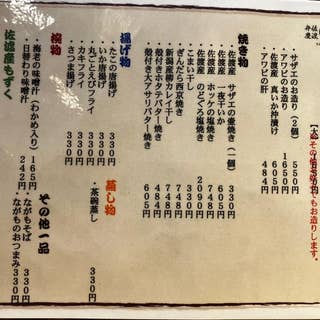 ・サザエのお造り(2個) 550円
・アワビのお造り 1650円
・佐渡産 真いか沖漬け 605円
・アワビの肝 484円
焼き物
・佐渡産 サザエの壷焼き(一個) 330円
・佐渡産 一夜干いか 605円
・佐渡産 ホッケの塩焼き
・佐渡産 のどぐろ塩焼き 2090円
・こまい干し
・ぎんだら西京焼き
・新潟産柳カレイ干し 748円
・殻付きホタテバター焼き
・殻付き大アサリバター焼き 605円
揚げ物
・たこの唐揚げ
・いか唐揚げ
・丸ごとえびフライ
・カキフライ
・さつま揚げ 330円
蒸し物
・茶碗蒸し 330円
椀物
・海老の味噌汁(わかめ入り) 165円
・日替わり味噌汁 242円
佐渡産もずく
その他一品
・ながもそば 330円
・ながものおつまみ 330円